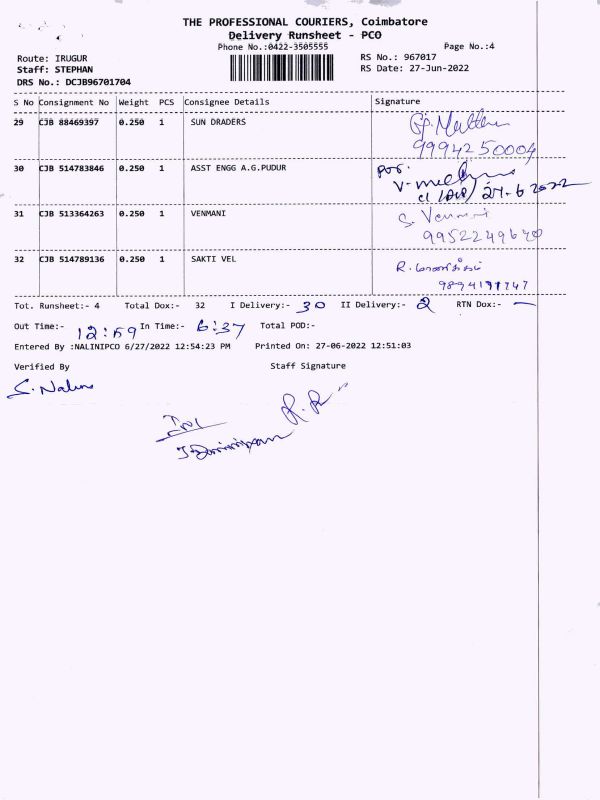 THE PROFESSIONAL COURIERS, Coimbatore
Delivery Runsheet - PCO
Phone No.:0422-3505555
Page No.:4
Route: IRUGUR
RS No.: 967017
Staff: STEPHAN
RS Date: 27-Jun-2022
DRS No.: DCJB96701704
S No Consignment No Weight PCS Consignee Details Signature
29 CJB 88469397 0.250 1 SUN DRADERS
9994250004
30 CJB 514783846 0.250 1 ASST ENGG A.G.PUDUR
27-6 2022
31 CJB 513364263 0.250 1 VENMANI S. Venmani
9952249670
32 CJB 514789136 0.250 1 SAKTI VEL
9894197747
Tot. Runsheet:- 4 Total Dox:- 32 I Delivery:- 30 II Delivery:- 2 RTN Dox:- —
Out Time:- 12:59 In Time:- 6:37 Total POD:-
Entered By :NALINIPCO 6/27/2022 12:54:23 PM Printed On: 27-06-2022 12:51:03
Verified By Staff Signature
S. Nalini